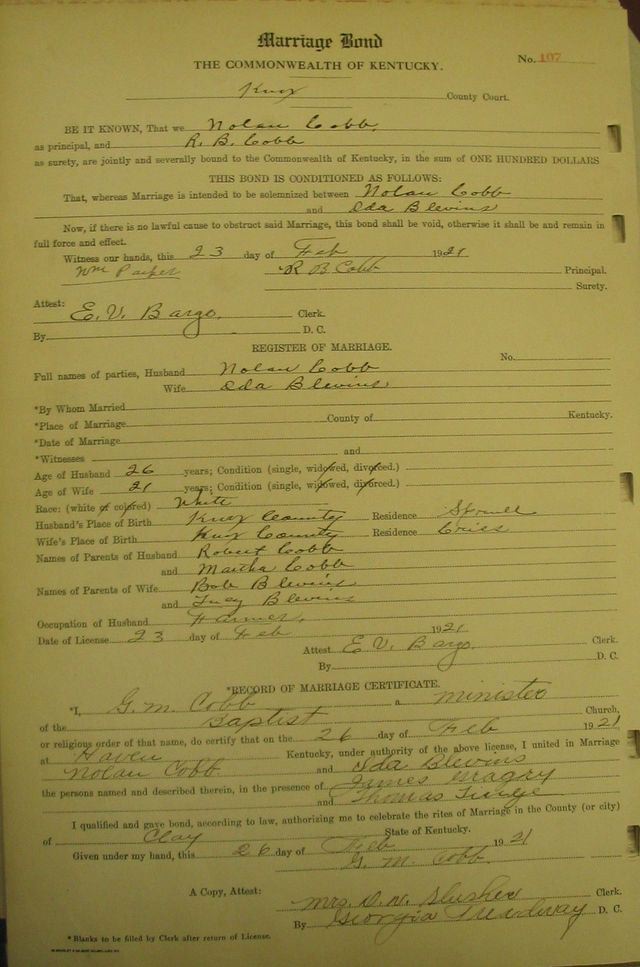 Marriage Bond
No. 197
THE COMMONWEALTH OF KENTUCKY.
Knox County Court.
BE IT KNOWN, That we Nolan Cobb,
as principal, and R. B. Cobb
as surety, are jointly and severally bound to the Commonwealth of Kentucky, in the sum of ONE HUNDRED DOLLARS
THIS BOND IS CONDITIONED AS FOLLOWS:
That, whereas Marriage is intended to be solemnized between Nolan Cobb
and Ida Blevins
Now, if there is no lawful cause to obstruct said Marriage, this bond shall be void, otherwise it shall be and remain in
full force and effect.
Witness our hands, this 23 day of Feb 1921
Wm Parker R B Cobb Principal.
Surety.
Attest:
E. V. Bargo. Clerk.
By D. C.
REGISTER OF MARRIAGE.
No.
Full names of parties, Husband Nolan Cobb
Wife Ida Blevins
*By Whom Married
*Place of Marriage County of Kentucky.
*Date of Marriage
*Witnesses and
Age of Husband 26 years; Condition (single, widowed, divorced.)
Age of Wife 21 years; Condition (single, widowed, divorced.)
Race: (white or colored) White
Husband's Place of Birth Knox County Residence
Wife's Place of Birth Knox County Residence
Names of Parents of Husband Robert Cobb
and Martha Cobb
Names of Parents of Wife Bob Blevins
and Lucy Blevins
Occupation of Husband Farmer.
Date of License 23 day of Feb 1921
Attest E. V. Bargo. Clerk.
By D. C.
*RECORD OF MARRIAGE CERTIFICATE.
*I, G. M. Cobb a minister
of the Baptist Church,
or religious order of that name, do certify that on the 26 day of Feb 1921
at Haven Kentucky, under authority of the above license, I united in Marriage
Nolan Cobb and Ida Blevins
the persons named and described therein, in the presence of James
and Thomas
I qualified and gave bond, according to law, authorizing me to celebrate the rites of Marriage in the County (or city)
of Clay State of Kentucky.
Given under my hand, this 26 day of Feb 1921
G. M. Cobb.
A Copy, Attest: Mrs. D. W. Slusher Clerk.
By Georgia Treadway D. C.
*Blanks to be filled by Clerk after return of License.